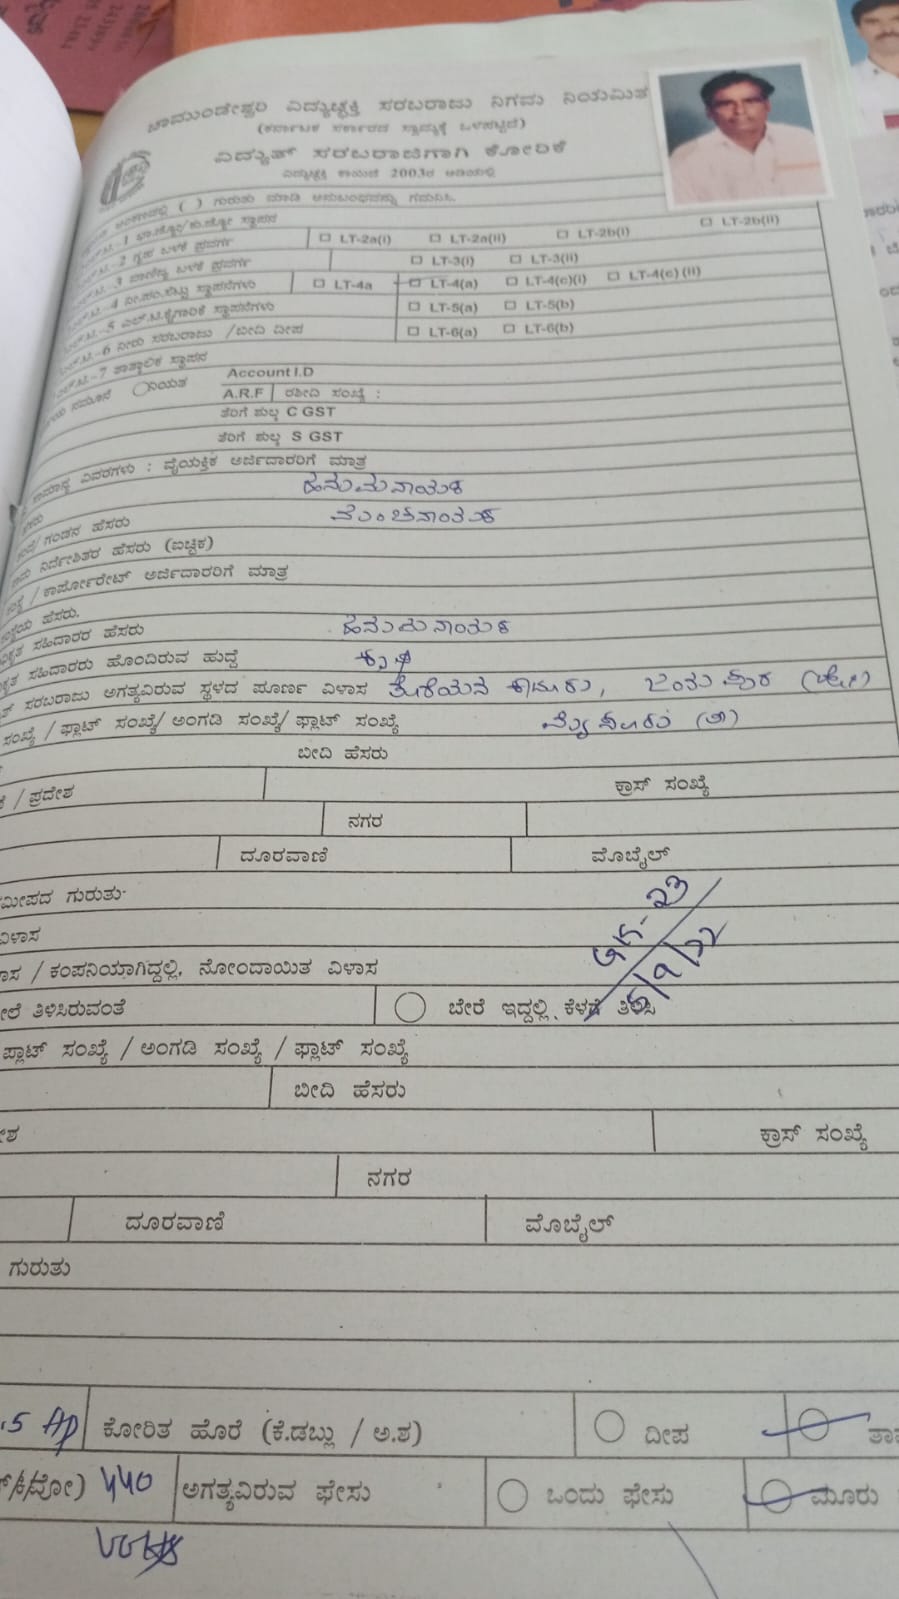 ಚಾಮುಂಡೇಶ್ವರಿ ವಿದ್ಯುಚ್ಛಕ್ತಿ ಸರಬರಾಜು ನಿಗಮ ನಿಯಮಿತ
(ಕರ್ನಾಟಕ ಸರ್ಕಾರದ ಸ್ವಾಮ್ಯಕ್ಕೆ ಒಳಪಟ್ಟಿದೆ)
ವಿದ್ಯುತ್ ಸರಬರಾಜಿಗಾಗಿ ಕೋರಿಕೆ
ವಿದ್ಯುಚ್ಛಕ್ತಿ ಕಾಯಿದೆ 2003ರ ಅಡಿಯಲ್ಲಿ
( ) ಗುರುತು ಮಾಡಿ ಅನುಬಂಧವನ್ನು ಗಮನಿಸಿ.
-1 ಭಾ.ಜ್ಯೋ/ಕು.ಜ್ಯೋ ಸ್ಥಾಪನ
-2 ಗೃಹ ಬಳಕೆ ಪ್ರವರ್ಗ LT-2a(i) LT-2a(ii) LT-2b(i) LT-2b(ii)
-3 ವಾಣಿಜ್ಯ ಬಳಕೆ ಪ್ರವರ್ಗ LT-3(i) LT-3(ii)
-4 ನೀ.ಪಂ.ಸೆಟ್ಟು ಸ್ಥಾಪನೆಗಳು LT-4a LT-4(a) LT-4(c)(i) LT-4(c)(ii)
-5 ಎಲ್.ಟಿ.ಕೈಗಾರಿಕೆ ಸ್ಥಾಪನೆಗಳು LT-5(a) LT-5(b)
-6 ನೀರು ಸರಬರಾಜು /ಬೀದಿ ದೀಪ LT-6(a) LT-6(b)
-7 ತಾತ್ಕಾಲಿಕ ಸ್ಥಾಪನ
ನಮೂನೆ ನಿಯತ Account I.D
A.R.F ರಶೀದಿ ಸಂಖ್ಯೆ :
ತೆರಿಗೆ ಶುಲ್ಕ C GST
ತೆರಿಗೆ ಶುಲ್ಕ S GST
ಸಾಮಾನ್ಯ ವಿವರಗಳು : ವೈಯಕ್ತಿಕ ಅರ್ಜಿದಾರರಿಗೆ ಮಾತ್ರ
ಹನುಮನಾಯಕ
/ ಗಂಡನ ಹೆಸರು
ನಿರ್ದೇಶಿತರ ಹೆಸರು (ಐಚ್ಛಿಕ)
/ ಕಾರ್ಪೋರೇಟ್ ಅರ್ಜಿದಾರರಿಗೆ ಮಾತ್ರ
ಸಂಸ್ಥೆಯ ಹೆಸರು.
ಸಹಿದಾರರ ಹೆಸರು ಹನುಮನಾಯಕ
ಸಹಿದಾರರು ಹೊಂದಿರುವ ಹುದ್ದೆ ಕೃಷಿ
ಸರಬರಾಜು ಅಗತ್ಯವಿರುವ ಸ್ಥಳದ ಪೂರ್ಣ ವಿಳಾಸ
ಸಂಖ್ಯೆ / ಫ್ಲಾಟ್ ಸಂಖ್ಯೆ/ ಅಂಗಡಿ ಸಂಖ್ಯೆ/ ಫ್ಲಾಟ್ ಸಂಖ್ಯೆ ಮೈಸೂರು (ಜಿ)
ಬೀದಿ ಹೆಸರು
/ ಪ್ರದೇಶ ಕ್ರಾಸ್ ಸಂಖ್ಯೆ
ನಗರ
ದೂರವಾಣಿ ಮೊಬೈಲ್
ಸಮೀಪದ ಗುರುತು
ವಿಳಾಸ
/ ಕಂಪನಿಯಾಗಿದ್ದಲ್ಲಿ, ನೋಂದಾಯಿತ ವಿಳಾಸ
ತಿಳಿಸಿರುವಂತೆ ಬೇರೆ ಇದ್ದಲ್ಲಿ ಕೆಳಗೆ ತಿಳಿಸಿ
ಪ್ಲಾಟ್ ಸಂಖ್ಯೆ / ಅಂಗಡಿ ಸಂಖ್ಯೆ / ಫ್ಲಾಟ್ ಸಂಖ್ಯೆ
ಬೀದಿ ಹೆಸರು
ಕ್ರಾಸ್ ಸಂಖ್ಯೆ
ನಗರ
ದೂರವಾಣಿ ಮೊಬೈಲ್
ಗುರುತು
ಕೋರಿತ ಹೊರೆ (ಕೆ.ಡಬ್ಲು / ಅ.ಶ) ದೀಪ
440 ಅಗತ್ಯವಿರುವ ಫೇಸು ಒಂದು ಫೇಸು ಮೂರು